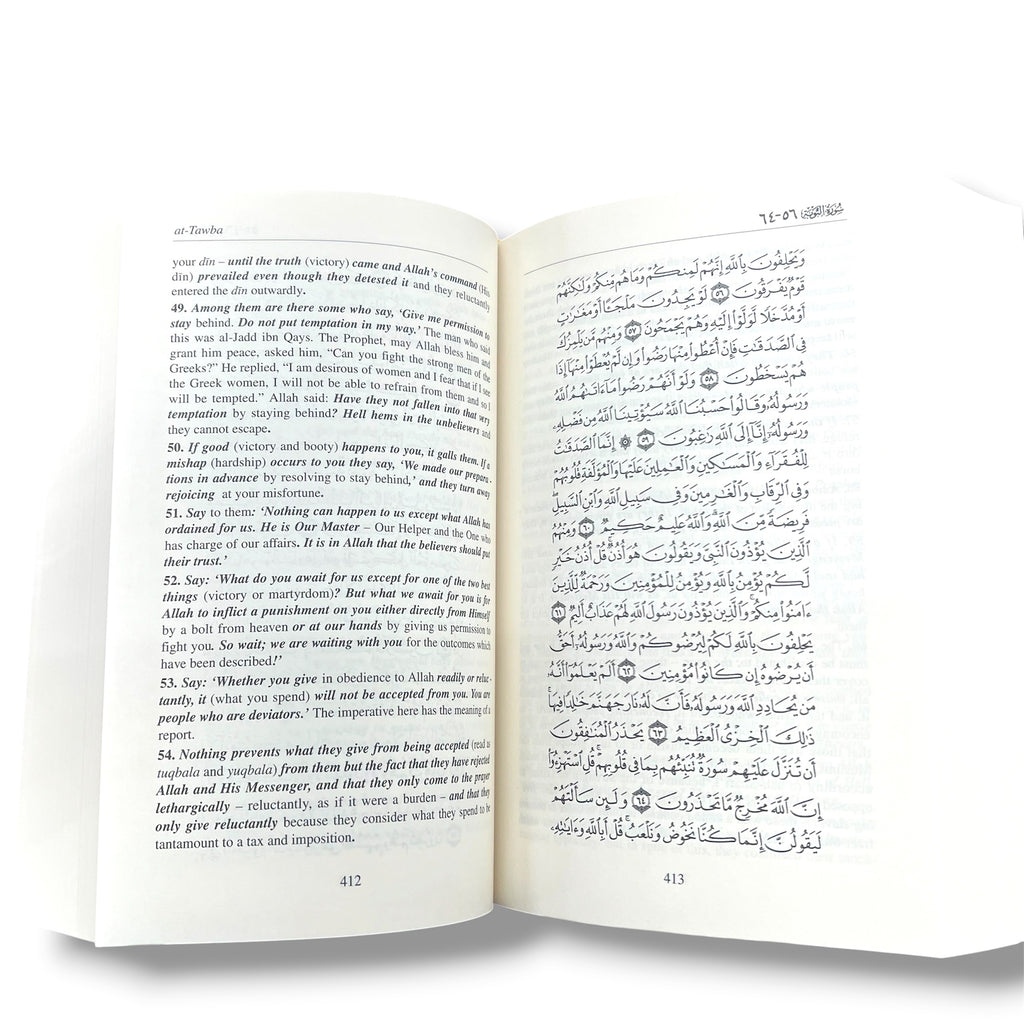 at-Tawba
your dīn – until the truth (victory) came and Allah's command (His
dīn) prevailed even though they detested it and they reluctantly
entered the dīn outwardly.
49. Among them are there some who say, 'Give me permission to
stay behind. Do not put temptation in my way.' The man who said
this was al-Jadd ibn Qays. The Prophet, may Allah bless him and
grant him peace, asked him, "Can you fight the strong men of the
Greeks?" He replied, "I am desirous of women and I fear that if I see
the Greek women, I will not be able to refrain from them and so I
will be tempted." Allah said: Have they not fallen into that very
temptation by staying behind? Hell hems in the unbelievers and
they cannot escape.
50. If good (victory and booty) happens to you, it galls them. If a
mishap (hardship) occurs to you they say, 'We made our prepara-
tions in advance by resolving to stay behind,' and they turn away
rejoicing at your misfortune.
51. Say to them: 'Nothing can happen to us except what Allah has
ordained for us. He is Our Master – Our Helper and the One who
has charge of our affairs. It is in Allah that the believers should put
their trust.'
52. Say: 'What do you await for us except for one of the two best
things (victory or martyrdom)? But what we await for you is for
Allah to inflict a punishment on you either directly from Himself
by a bolt from heaven or at our hands by giving us permission to
fight you. So wait; we are waiting with you for the outcomes which
have been described!'
53. Say: 'Whether you give in obedience to Allah readily or reluc-
tantly, it (what you spend) will not be accepted from you. You are
people who are deviators.' The imperative here has the meaning of a
report.
54. Nothing prevents what they give from being accepted (read as
tuqbala and yuqbala) from them but the fact that they have rejected
Allah and His Messenger, and that they only come to the prayer
lethargically – reluctantly, as if it were a burden – and that they
only give reluctantly because they consider what they spend to be
tantamount to a tax and imposition.
412
سُورَةُ التَّوْبَة ٥٦-٦٤
وَيَحْلِفُونَ بِاللَّهِ إِنَّهُمْ لَمِنكُمْ وَمَا هُم مِّنكُمْ وَلَٰكِنَّهُمْ
قَوْمٌ يَفْرَقُونَ ٥٦ لَوْ يَجِدُونَ مَلْجَـًٔا أَوْ مَغَٰرَٰتٍ
أَوْ مُدَّخَلًا لَّوَلَّوْا۟ إِلَيْهِ وَهُمْ يَجْمَحُونَ ٥٧ وَمِنْهُم مَّن يَلْمِزُكَ
فِى الصَّدَقَٰتِ فَإِنْ أُعْطُوا۟ مِنْهَا رَضُوا۟ وَإِن لَّمْ يُعْطَوْا۟ مِنْهَا إِذَا
هُمْ يَسْخَطُونَ ٥٨ وَلَوْ أَنَّهُمْ رَضُوا۟ مَا ءَاتَىٰهُمُ اللَّهُ
وَرَسُولُهُۥ وَقَالُوا۟ حَسْبُنَا اللَّهُ سَيُؤْتِينَا اللَّهُ مِن فَضْلِهِۦ
وَرَسُولُهُۥٓ إِنَّآ إِلَى اللَّهِ رَٰغِبُونَ ٥٩ ۞ إِنَّمَا الصَّدَقَٰتُ
لِلْفُقَرَآءِ وَالْمَسَٰكِينِ وَالْعَٰمِلِينَ عَلَيْهَا وَالْمُؤَلَّفَةِ قُلُوبُهُمْ
وَفِى الرِّقَابِ وَالْغَٰرِمِينَ وَفِى سَبِيلِ اللَّهِ وَابْنِ السَّبِيلِ
فَرِيضَةً مِّنَ اللَّهِ وَاللَّهُ عَلِيمٌ حَكِيمٌ ٦٠ وَمِنْهُمُ
الَّذِينَ يُؤْذُونَ النَّبِىَّ وَيَقُولُونَ هُوَ أُذُنٌ قُلْ أُذُنُ خَيْرٍ
لَّكُمْ يُؤْمِنُ بِاللَّهِ وَيُؤْمِنُ لِلْمُؤْمِنِينَ وَرَحْمَةٌ لِّلَّذِينَ
ءَامَنُوا۟ مِنكُمْ وَالَّذِينَ يُؤْذُونَ رَسُولَ اللَّهِ لَهُمْ عَذَابٌ أَلِيمٌ ٦١
يَحْلِفُونَ بِاللَّهِ لَكُمْ لِيُرْضُوكُمْ وَاللَّهُ وَرَسُولُهُۥٓ أَحَقُّ
أَن يُرْضُوهُ إِن كَانُوا۟ مُؤْمِنِينَ ٦٢ أَلَمْ يَعْلَمُوٓا۟ أَنَّهُۥ
مَن يُحَادِدِ اللَّهَ وَرَسُولَهُۥ فَأَنَّ لَهُۥ نَارَ جَهَنَّمَ خَٰلِدًا فِيهَا
ذَٰلِكَ الْخِزْىُ الْعَظِيمُ ٦٣ يَحْذَرُ الْمُنَٰفِقُونَ
أَن تُنَزَّلَ عَلَيْهِمْ سُورَةٌ تُنَبِّئُهُم بِمَا فِى قُلُوبِهِمْ قُلِ اسْتَهْزِءُوٓا۟
إِنَّ اللَّهَ مُخْرِجٌ مَّا تَحْذَرُونَ ٦٤ وَلَئِن سَأَلْتَهُمْ
لَيَقُولُنَّ إِنَّمَا كُنَّا نَخُوضُ وَنَلْعَبُ قُلْ أَبِاللَّهِ وَءَايَٰتِهِۦ
413